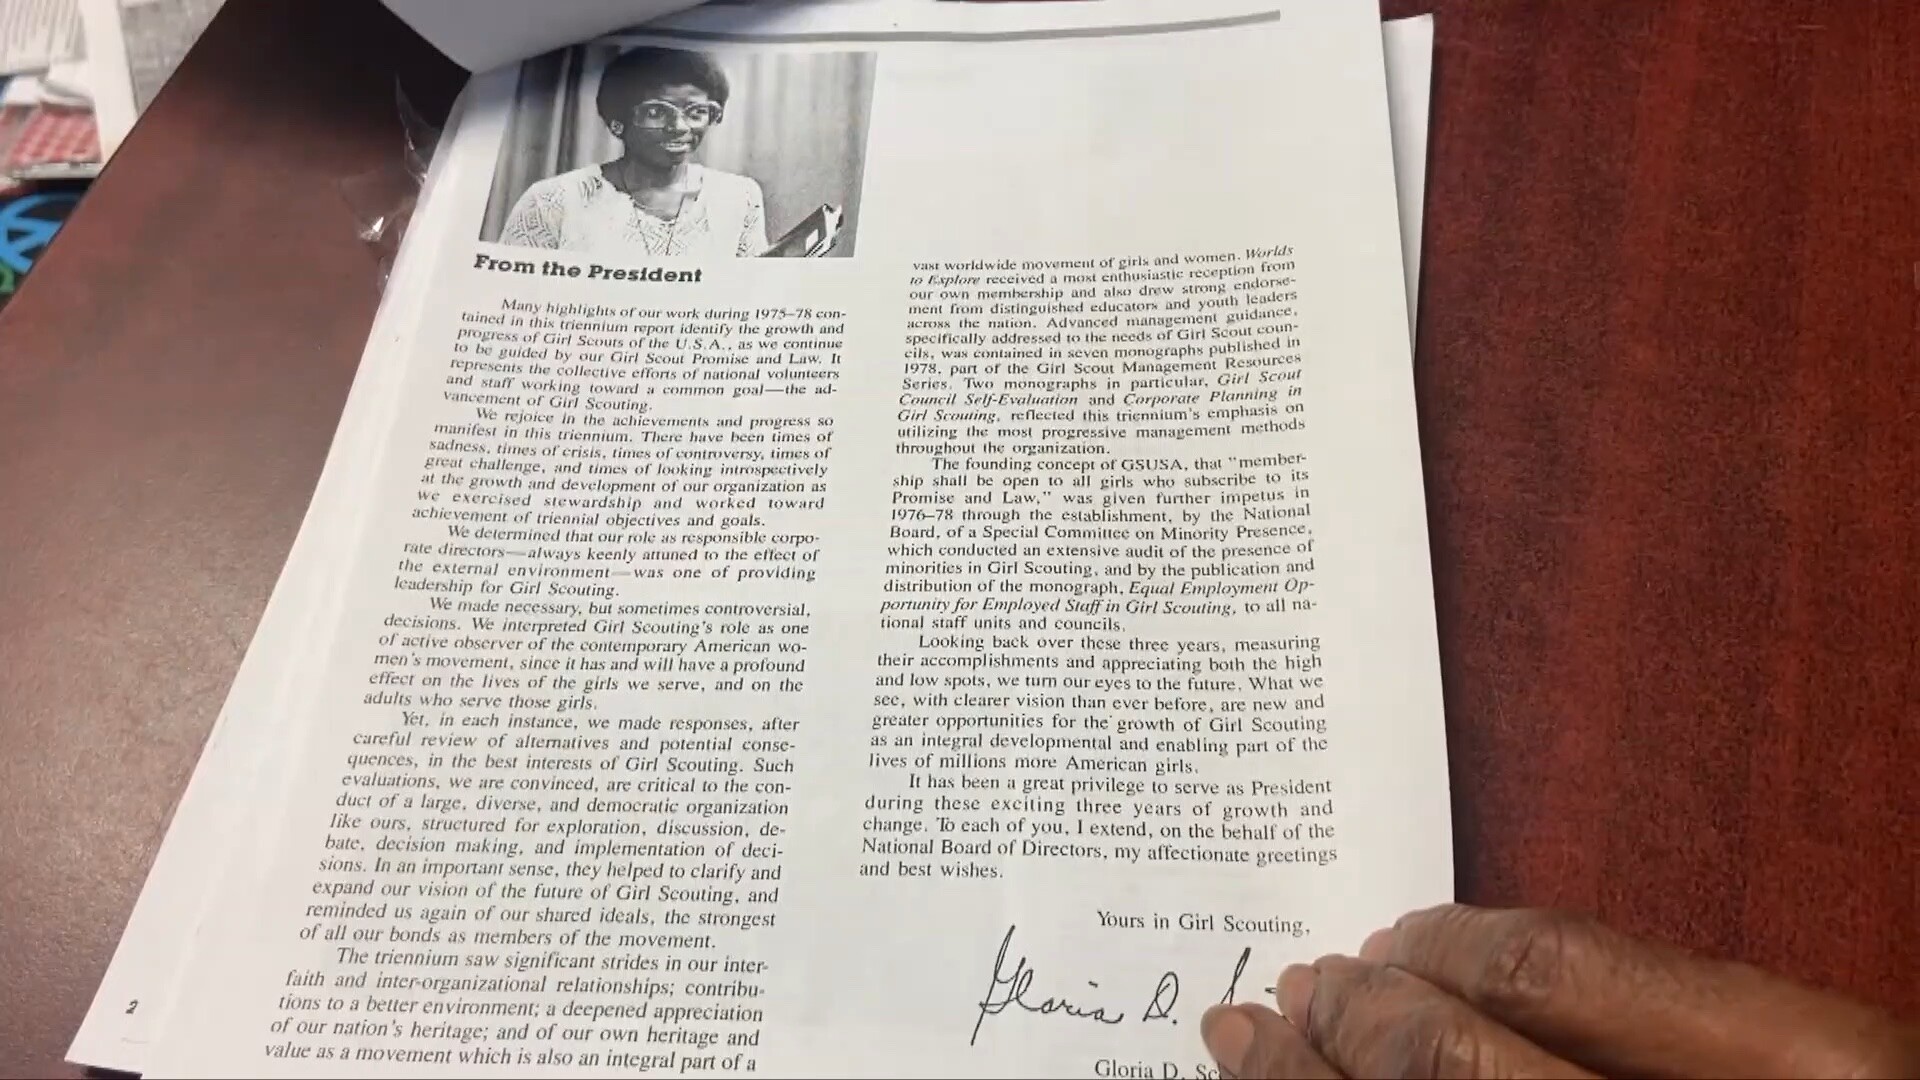 From the President
Many highlights of our work during 1975–78 con-
tained in this triennium report identify the growth and
progress of Girl Scouts of the U.S.A., as we continue
to be guided by our Girl Scout Promise and Law. It
represents the collective efforts of national volunteers
and staff working toward a common goal—the ad-
vancement of Girl Scouting.
We rejoice in the achievements and progress so
manifest in this triennium. There have been times of
sadness, times of crisis, times of controversy, times of
great challenge, and times of looking introspectively
at the growth and development of our organization as
we exercised stewardship and worked toward
achievement of triennial objectives and goals.
We determined that our role as responsible corpo-
rate directors—always keenly attuned to the effect of
the external environment—was one of providing
leadership for Girl Scouting.
We made necessary, but sometimes controversial,
decisions. We interpreted Girl Scouting's role as one
of active observer of the contemporary American wo-
men's movement, since it has and will have a profound
effect on the lives of the girls we serve, and on the
adults who serve those girls.
Yet, in each instance, we made responses, after
careful review of alternatives and potential conse-
quences, in the best interests of Girl Scouting. Such
evaluations, we are convinced, are critical to the con-
duct of a large, diverse, and democratic organization
like ours, structured for exploration, discussion, de-
bate, decision making, and implementation of deci-
sions. In an important sense, they helped to clarify and
expand our vision of the future of Girl Scouting, and
reminded us again of our shared ideals, the strongest
of all our bonds as members of the movement.
The triennium saw significant strides in our inter-
faith and inter-organizational relationships; contribu-
tions to a better environment; a deepened appreciation
of our nation's heritage; and of our own heritage and
value as a movement which is also an integral part of a
2
vast worldwide movement of girls and women. Worlds
to Explore received a most enthusiastic reception from
our own membership and also drew strong endorse-
ment from distinguished educators and youth leaders
across the nation. Advanced management guidance,
specifically addressed to the needs of Girl Scout coun-
cils, was contained in seven monographs published in
1978, part of the Girl Scout Management Resources
Series. Two monographs in particular, Girl Scout
Council Self-Evaluation and Corporate Planning in
Girl Scouting, reflected this triennium's emphasis on
utilizing the most progressive management methods
throughout the organization.
The founding concept of GSUSA, that "member-
ship shall be open to all girls who subscribe to its
Promise and Law," was given further impetus in
1976–78 through the establishment, by the National
Board, of a Special Committee on Minority Presence,
which conducted an extensive audit of the presence of
minorities in Girl Scouting, and by the publication and
distribution of the monograph, Equal Employment Op-
portunity for Employed Staff in Girl Scouting, to all na-
tional staff units and councils.
Looking back over these three years, measuring
their accomplishments and appreciating both the high
and low spots, we turn our eyes to the future. What we
see, with clearer vision than ever before, are new and
greater opportunities for the growth of Girl Scouting
as an integral developmental and enabling part of the
lives of millions more American girls.
It has been a great privilege to serve as President
during these exciting three years of growth and
change. To each of you, I extend, on the behalf of the
National Board of Directors, my affectionate greetings
and best wishes.
Yours in Girl Scouting,
Gloria D.
Gloria D.